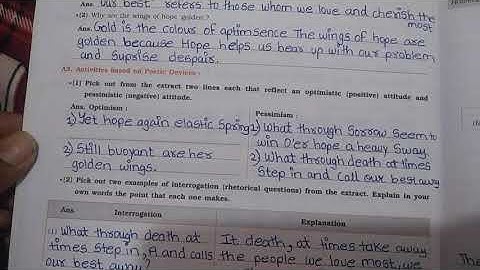 Ans. Our best refers to those whom we love and cherish the
most
•(2) Why are the wings of hope golden?
Ans. Gold is the colour of optimsence The wings of hope are
golden because Hope helps us bear up with our problem
and Suprise despair.
A3. Activities based on Poetic Devices :
•(1) Pick out from the extract two lines each that reflect an optimistic (positive) attitude and
pessimistic (negative) attitude.
Ans. Optimism :
Pessimism :
1) Yet hope again elastic Spring
2) Still buoyant are her
golden wings.
1) What through Sorrow Seem to
win O'er hope a heavy Sway
2) What through death at times
Step in and call our best away
•(2) Pick out two examples of interrogation (rhetorical questions) from the extract. Explain in your
own words the point that each one makes.
Ans Interrogation
Explanation
What through death at
times step in, And calls
our best away?
It death, at times take away
the people we love most, we